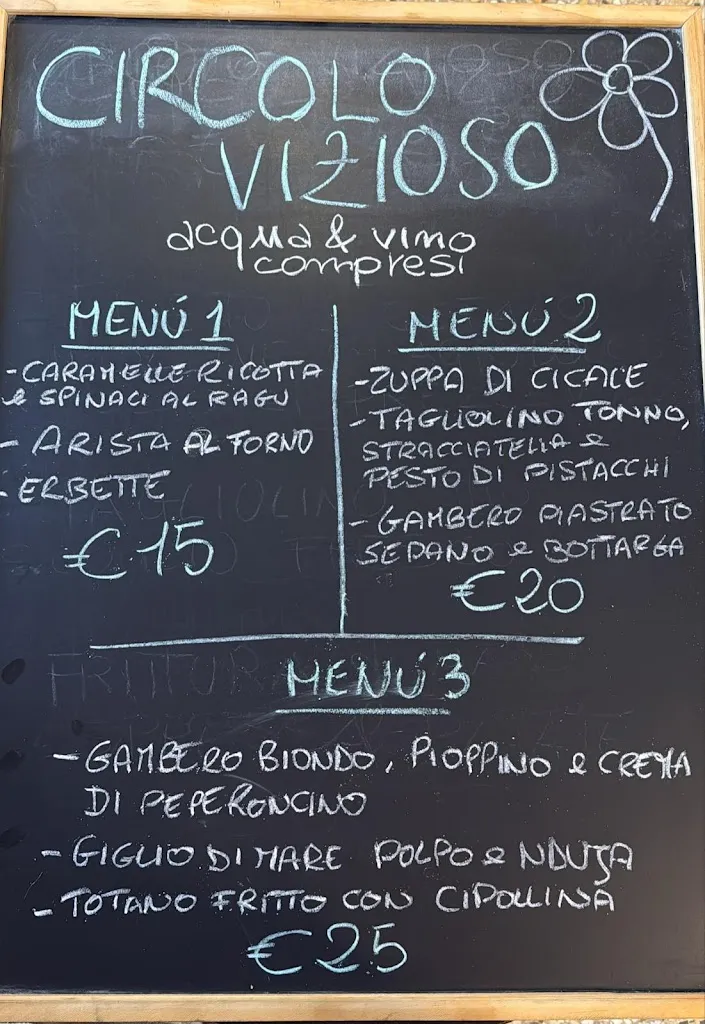 CIRCOLO
VIZIOSO
acqua & vino
compresi
MENÚ 1
- CARAMELLE RICOTTA
e SPINACI AL RAGU
- ARISTA AL FORNO
- ERBETTE
€15
MENÚ 2
- ZUPPA DI CICALE
- TAGLIOLINO TONNO,
STRACCIATELLA e
PESTO DI PISTACCHI
- GAMBERO PIASTRATO
SEDANO e BOTTARGA
€20
MENÚ 3
- GAMBERO BIONDO, PIOPPINO e CREMA
DI PEPERONCINO
- GIGLIO DI MARE POLPO e NDUJA
- TOTANO FRITTO CON CIPOLLINA
€25